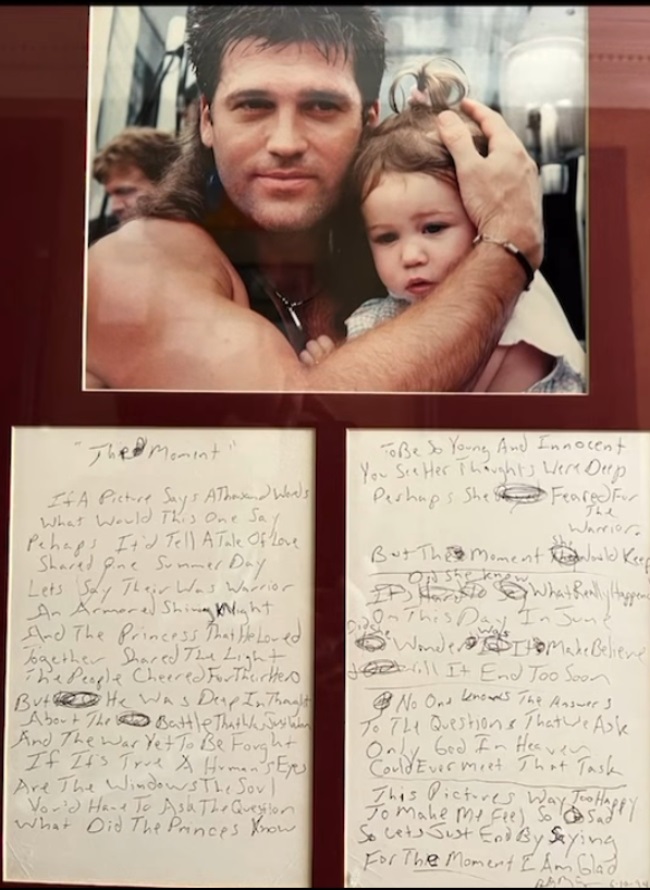 "The Moment"
If A Picture Says A Thousand Words
What Would This One Say
Pehaps It'd Tell A Tale Of Love
Shared One Summer Day
Lets Say Their Was Warrior
An Armored Shining Knight
And The Princess That He Loved
Together Shared The Light
The People Cheered For Their Hero
But He Was Deep In Thought
About The Battle That He Just
And The War Yet To Be Foght
If It's True A Human's Eyes
Are The Windows The Soul
You'd Have To Ask The Question
What Did The Princes Know
To Be So Young And Innocent
You See Her Thoughts Were Deep
Perhaps She Feared For
The
Warrior.
She
But The Moment Would Keep
Did She Know
What Really Happened
On This Day In June
Did She Wonder Was It Make Believe
Will It End Too Soon
No One Knows The Answers
To The Questions That We Ask
Only God In Heaven
Could Ever Meet That Task
This Pictures Way Too Happy
To Make Me Feel So Sad
So Lets Just End By Saying
For The Moment I Am Glad